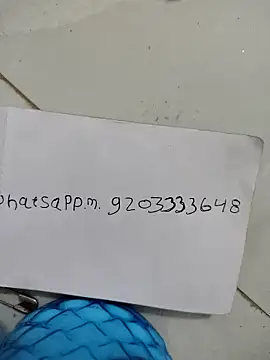 whatsapp.m. 9203333648